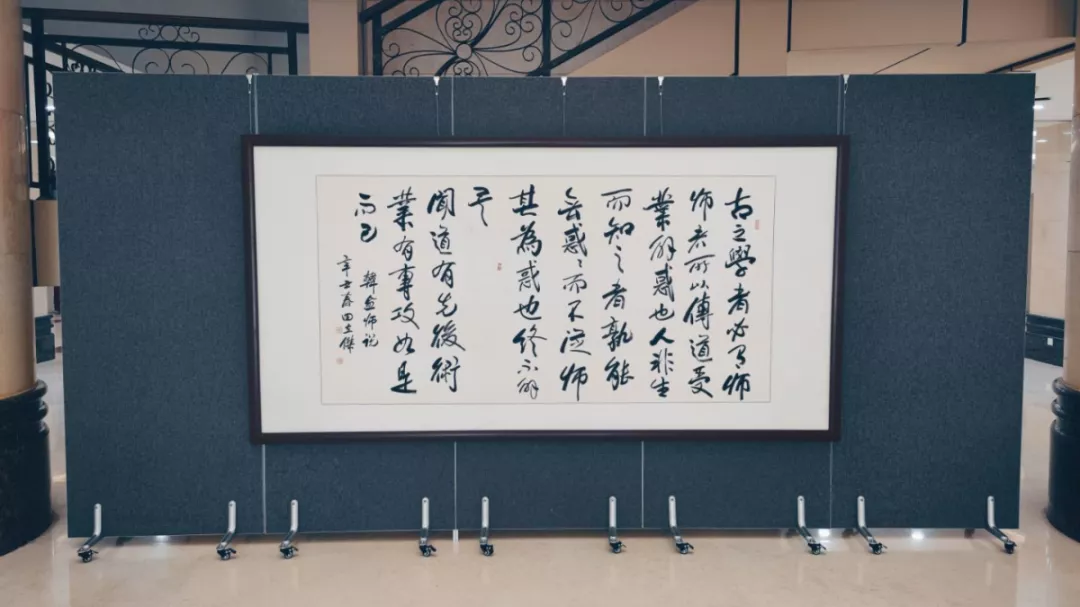 古之學者必有师
师者所以傳道受
業解惑也人非生
而知之者孰能
无惑惑而不從师
其為惑也終不解
矣
聞道有先後術
業有專攻如是
而已
韓愈师说
辛丑春田傑